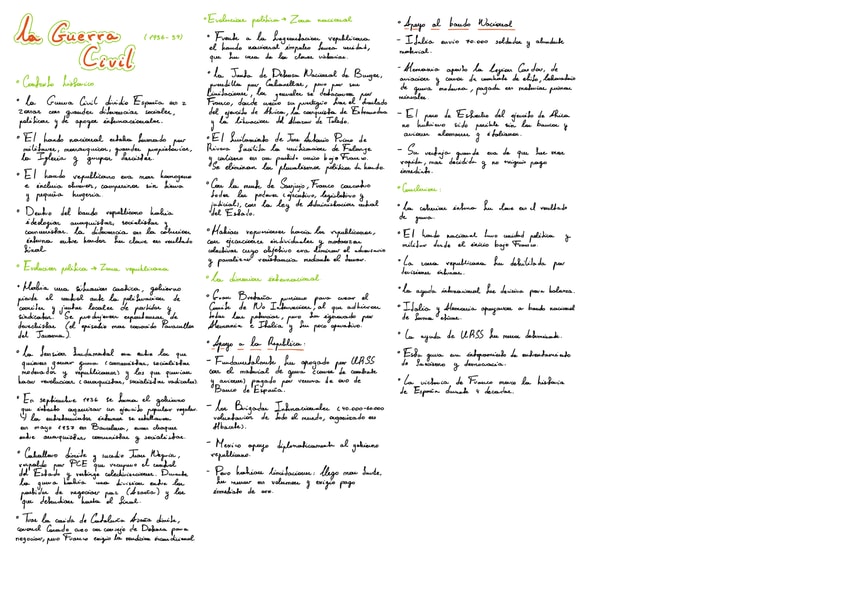 La Guerra
Civil
(1936-39)
• Contexto histórico
• La Guerra Civil dividió España en 2
zonas con grandes diferencias sociales,
políticas y de apoyos internacionales.
• El bando nacional estaba formado por
militares, monarquicos, grandes propietarios,
la Iglesia y grupos fascistas.
• El bando republicano era mas homogeneo
e incluia obreros, campesinos sin tierra
y pequeña burgesia.
• Dentro del bando republicano habia
ideologias anarquistas, socialistas y
comunistas. la diferencia en la cohesion
interna entre bandos fue clave en resultado
final.
• Evolucion politica → Zona republicana
• Habia una situacion caotica, gobierno
pierde el control ante la proliferacion de
comites y juntas locales de partidos y
sindicatos. Se produjeron
derechistas (el episodio mas conocido Paracuellos
del Jarama).
• La tension fundamental era entre los que
querian ganar guerra (comunistas, socialistas
moderados y republicanos) y los que querian
hacer revolucion (anarquistas, socialistas radicales)
• En septiembre 1936 se forma el gobierno
que intento organizar un ejercito popular regular
Y los enfrentamientos internos se
en mayo 1937 en Barcelona, con choques
entre anarquistas comunistas y socialistas.
• Caballero dimite y sucedio Juan Negrin,
respaldo por PCE que recupero el control
del Estado y restringe colectivizaciones. Durante
la guerra habia una division entre los
partidos de negociar paz (Azaña) y los
que defendian hasta el final.
• Tras la caida de Cataluña Azaña dimite,
coronel Casado creo un consejo de Defensa para
negociar, pero Franco exigio la rendicion incondicional
• Evolucion politica → Zona nacional
• Frente a la fragmentacion republicana
el bando nacional impuso buena unidad,
que fue una de las claves victorias.
• La Junta de Defensa Nacional de Burgos,
presidida por Cabanellas, pero por sus
limitaciones, los generales se decantaron por
Franco, donde usaron su prestigio tras el traslado
del ejercito de Africa, la conquista de Extremadura
y la liberacion del Alcazar de Toledo.
• El fusilamiento de Jose Antonio Primo de
Rivera facilito la unificacion de Falange
y carlismo en un partido unico bajo Franco.
Se eliminan los pluralismos politicos de bando.
• Con la muerte de Sanjurjo, Franco concentro
todos los poderes (ejecutivo, legislativo y
judicial), con la ley de Administracion central
del Estado.
• Habian represiones hacia los republicanos,
con ejecuciones individuales y matanzas
colectivas cuyo objetivo era eliminar el adversario
y paralizar resistencia mediante el terror.
• La dimension internacional
• Gran Bretaña presiono para crear el
Comite de No Intervencion, al que adhirieron
todas las potencias, pero fue ignorado por
Alemania e Italia y fue poco operativo.
• Apoyo a la Republica:
- Fundamentalmente fue apoyado por URSS
con el material de guerra (carros de combate
y aviones) pagado por reserva de oro de
Banco de España.
- Las Brigadas Internacionales (40.000-60.000
voluntarios de todo el mundo, organizados en
Albacete).
- Mexico apoyo diplomaticamente al gobierno
republicano.
- Pero habian limitaciones: llego mas tarde,
fue menor en volumen y exigio pago
inmediato de oro.
• Apoyo al bando Nacional
- Italia envio 70.000 soldados y abundante
material.
- Alemania aporto la legion Condor, de
aviacion y carros de combate de elite, laboratorio
de guerra moderna, pagada en materias primas
minerales.
- El paso de Estrecho del ejercito de Africa
no hubiera sido posible sin los barcos y
aviones alemanes e italianos.
- Su ventaja grande era de que fue mas
rapida, mas decidida y no exigio pago
inmediato.
• Conclusiones:
• La cohesion interna fue clave en el resultado
de guerra.
• El bando nacional tuvo unidad politica y
militar desde el inicio bajo Franco.
• La zona republicana fue debilitada por
divisiones internas.
• La ayuda internacional fue decisiva para balanza.
• Italia y Alemania apoyaron a bando nacional
de forma
• La ayuda de URSS fue menos determinante.
• Esta guerra un anticipamiento de enfrentamiento
de fascismo y democracia.
• La victoria de Franco marco la historia
de España durante 4 decadas.